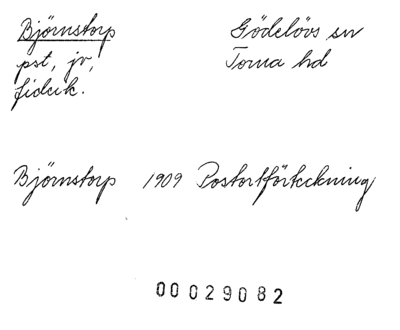 Björnstorp Gödelövs sn
pst, jv, Torna hd
fideik.
Björnstorp 1909 Postortförteckning
00029082